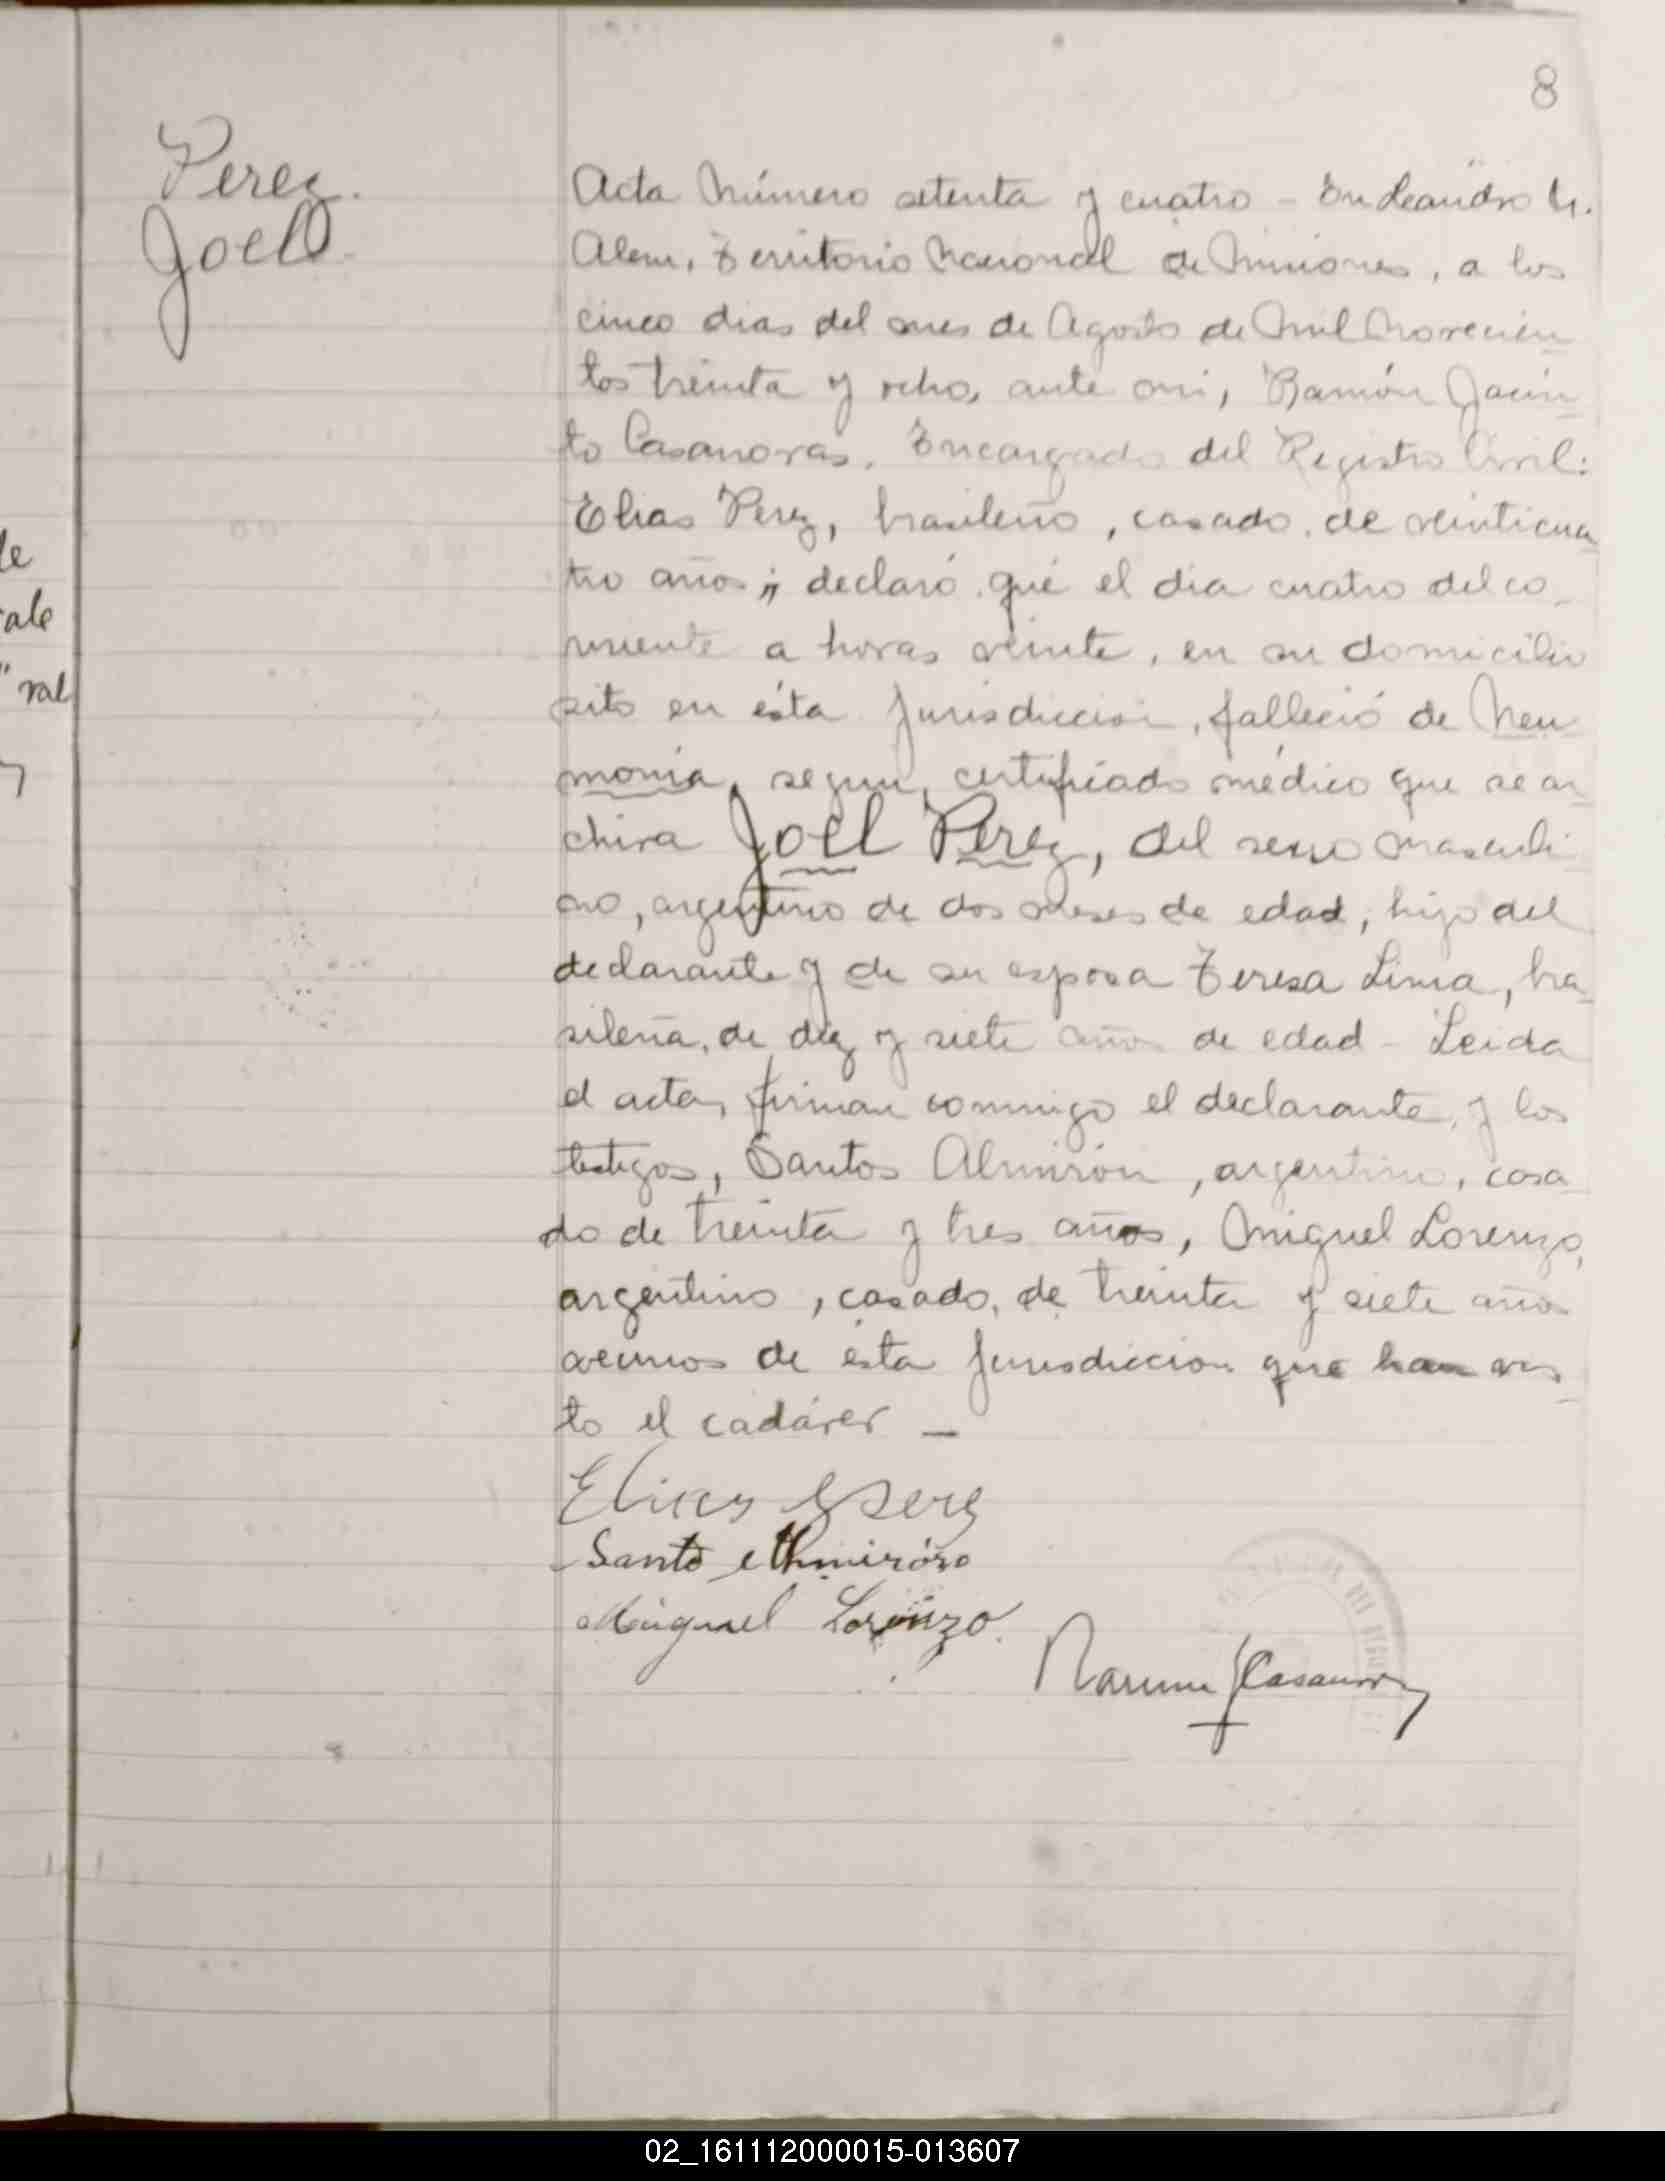 8
Perez
Joel
Acta Número setenta y cuatro - En Leandro N.
Alem, Territorio Nacional de Misiones, a los
cinco dias del mes de Agosto de Mil Novecien
tos treinta y ocho, ante mi, Ramón Jacin
to Casanovas, Encargado del Registro Civil:
Elias Perez, brasileño, casado, de veinticua
tro años, declaró que el dia cuatro del co
rriente a horas veinte, en su domicilio
sito en ésta Jurisdiccion, falleció de Neu
monia, segun, certificado médico que se ar
chiva Joel Perez, del sexo masculi
no, argentino de dos meses de edad, hijo del
declarante y de su esposa Teresa Lima, bra
sileña, de diez y siete años de edad - Leida
el acta, firman conmigo el declarante, y los
testigos, Santos Almirón, argentino, casa
do de treinta y tres años, Miguel Lorenzo,
argentino, casado, de treinta y siete años
vecinos de ésta Jurisdiccion que han vis
to el cadáver -
Elias Perez
Santo Almirón
Miguel Lorenzo
Ramon J Casanovas
le
ale
" val
02_161112000015-013607